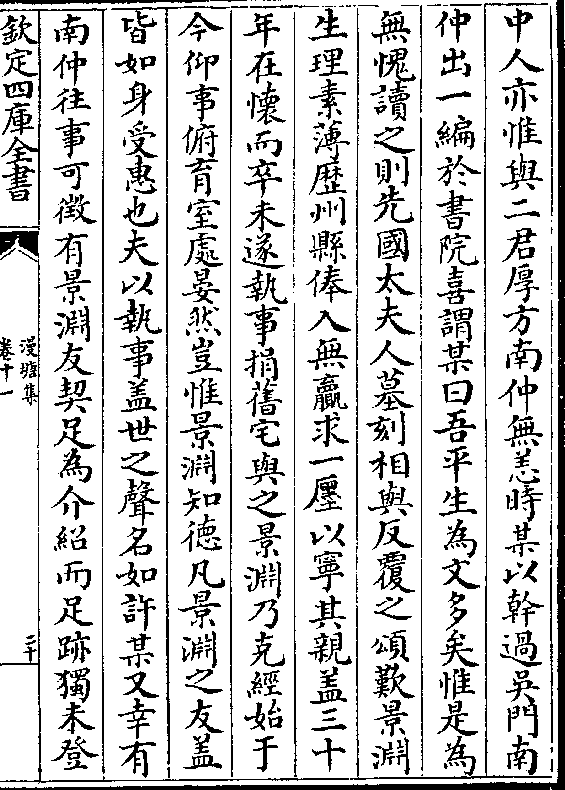 中人亦惟與二君厚方南仲無恙時某以幹過吳門南
仲出一編於書院喜謂某曰吾平生為文多矣惟是為
無愧讀之則先國太夫人墓刻相與反覆之頌歎景淵
生理素薄歴州縣俸入無贏求一廛以寧其親盖三十
年在懷而卒未遂執事捐舊宅與之景淵乃克經始于
今仰事俯育室處晏然豈惟景淵知德凡景淵之友盖
皆如身受惠也夫以執事盖世之聲名如許某又幸有
南仲往事可徵有景淵友契足為介紹而足跡獨未登
欽定四庫全書
漫塘集
卷十一
二十